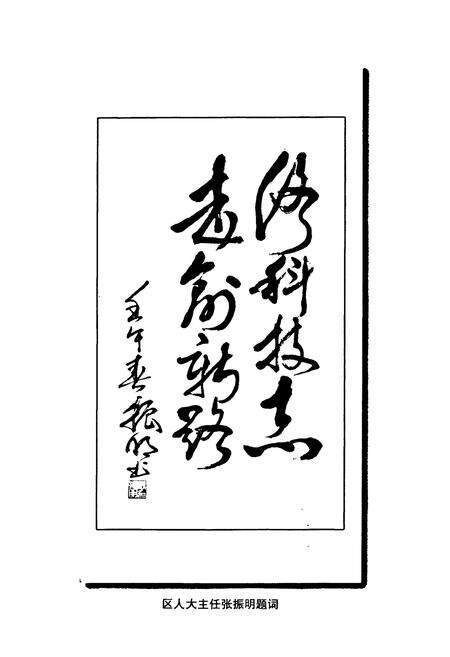 修科技志
走創新路
壬午春振明书
区人大主任张振明题词